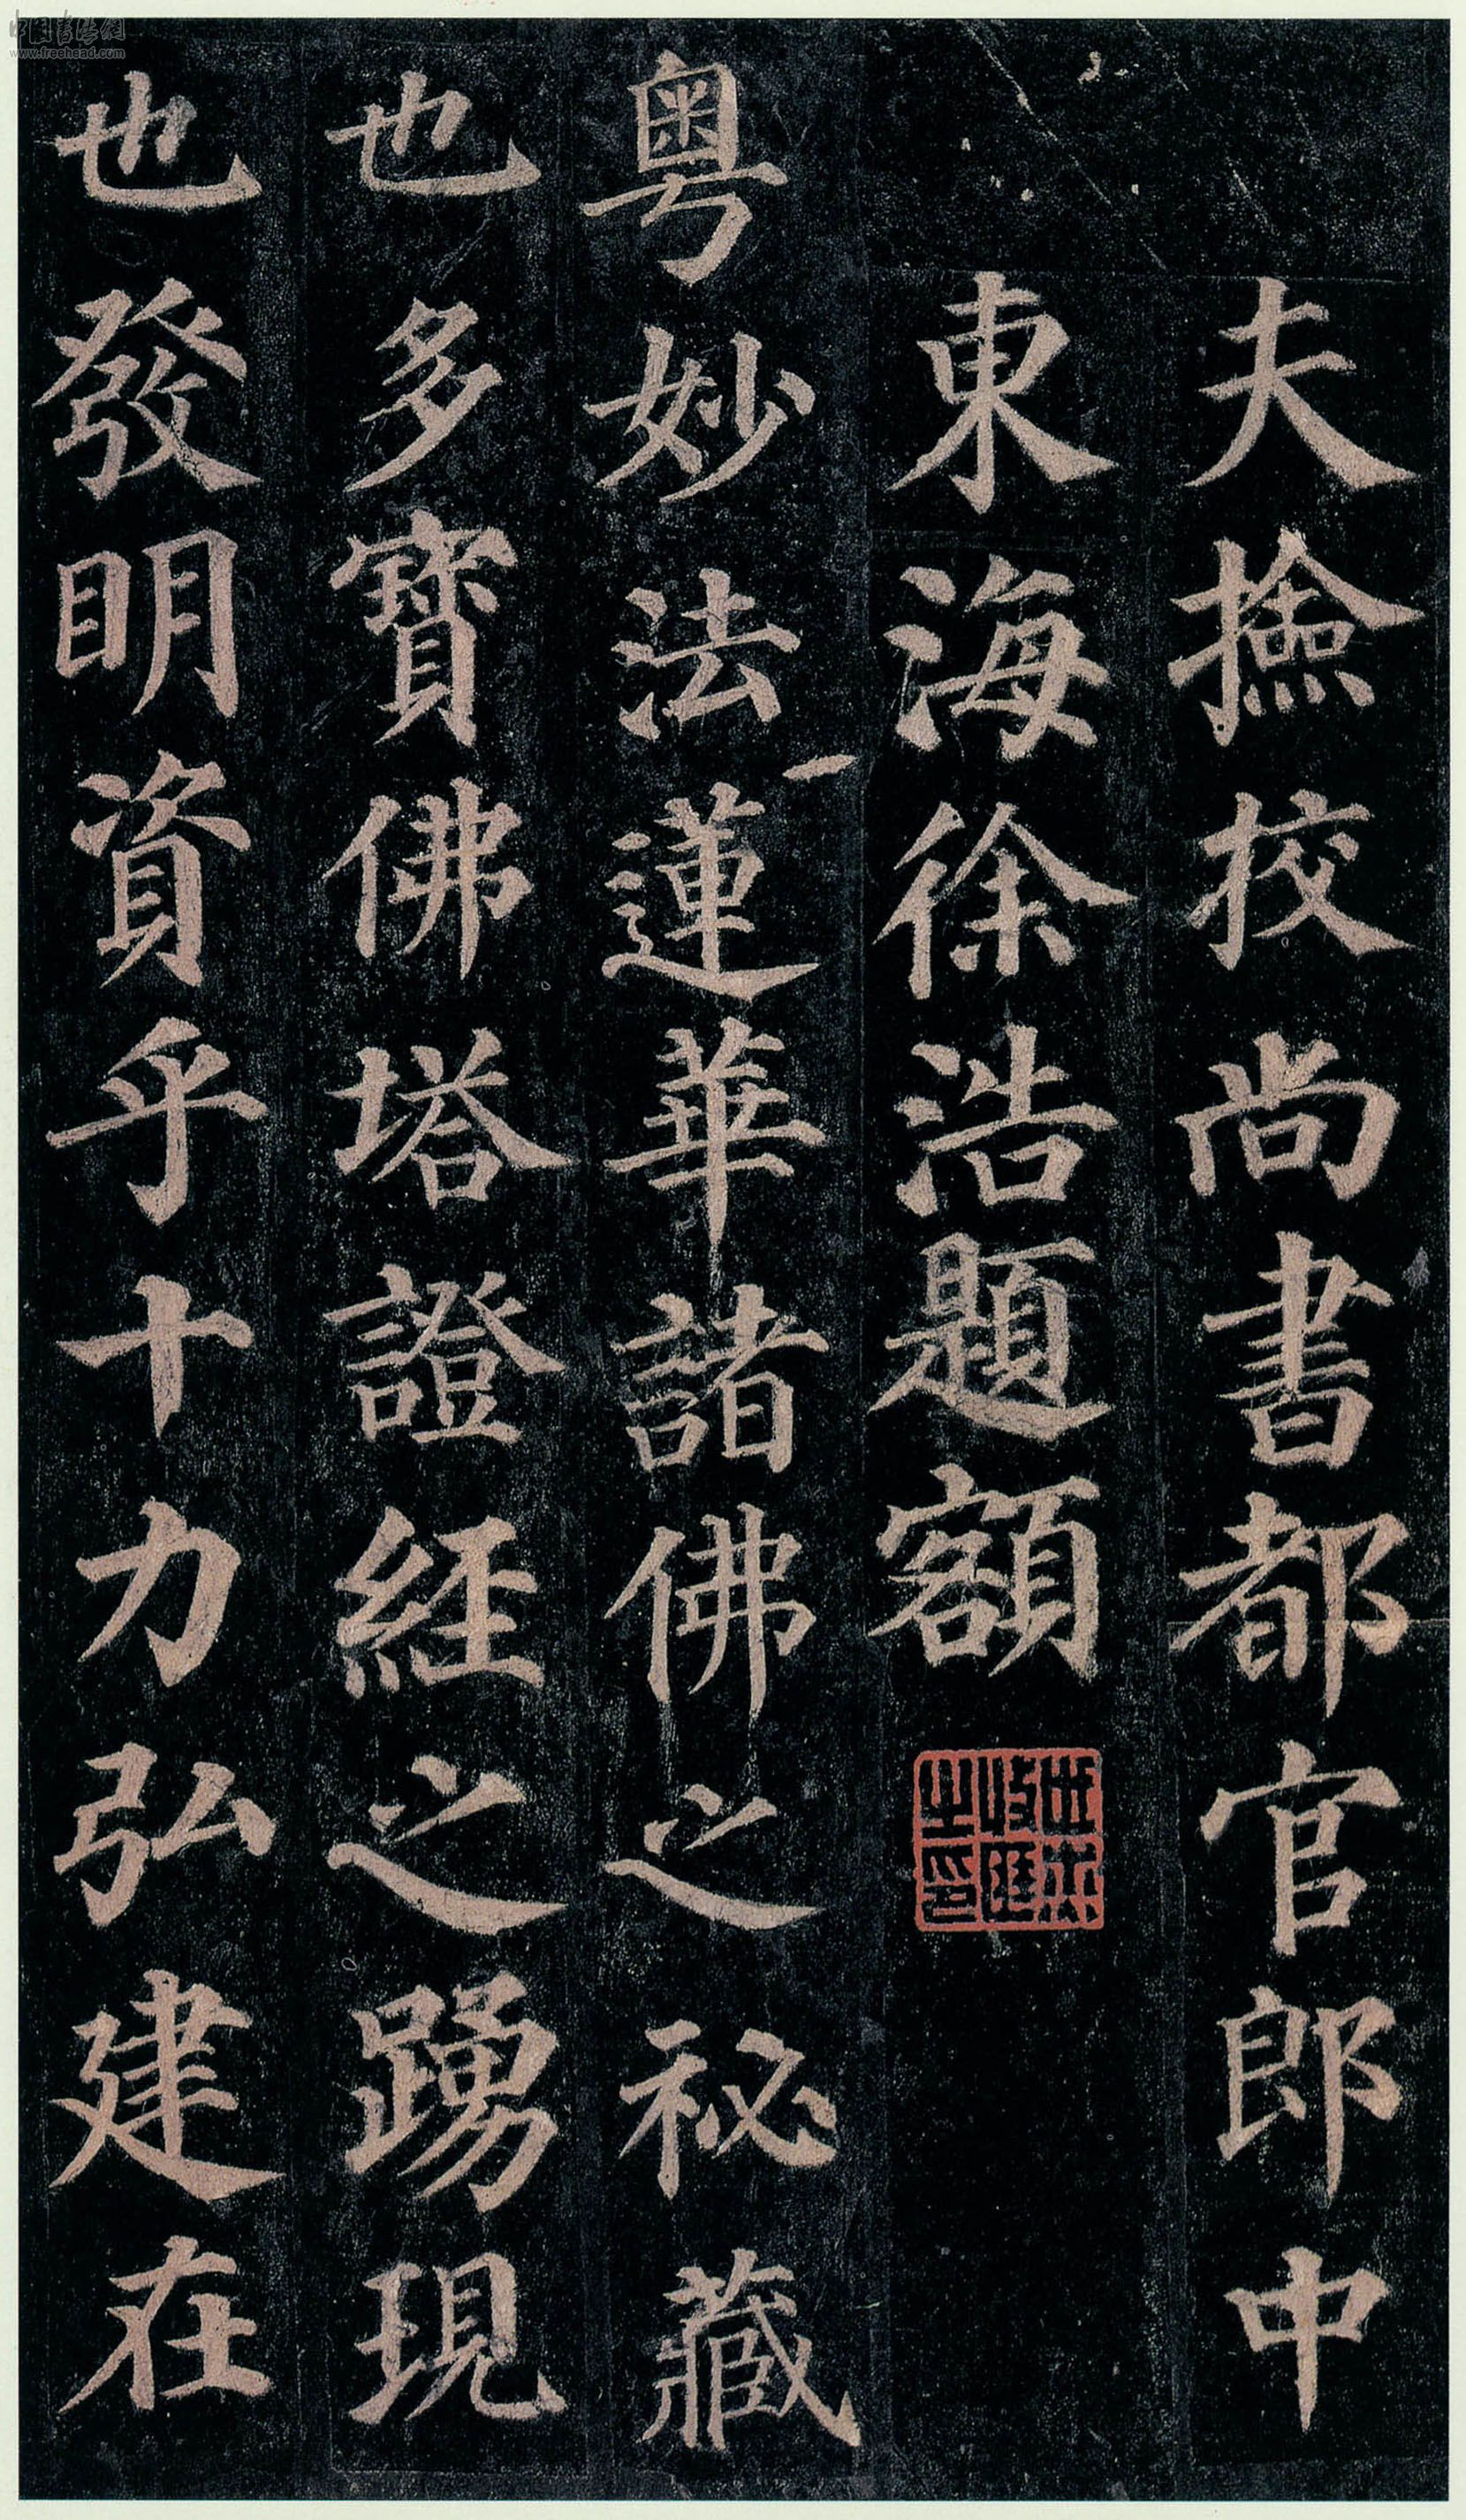 夫撿挍尚書都官郎中
東海徐浩題額
粵妙法蓮華諸佛之祕藏
也多寶佛塔證經之踴現
也發明資乎十力弘建在
中国书法网
www.freehead.com